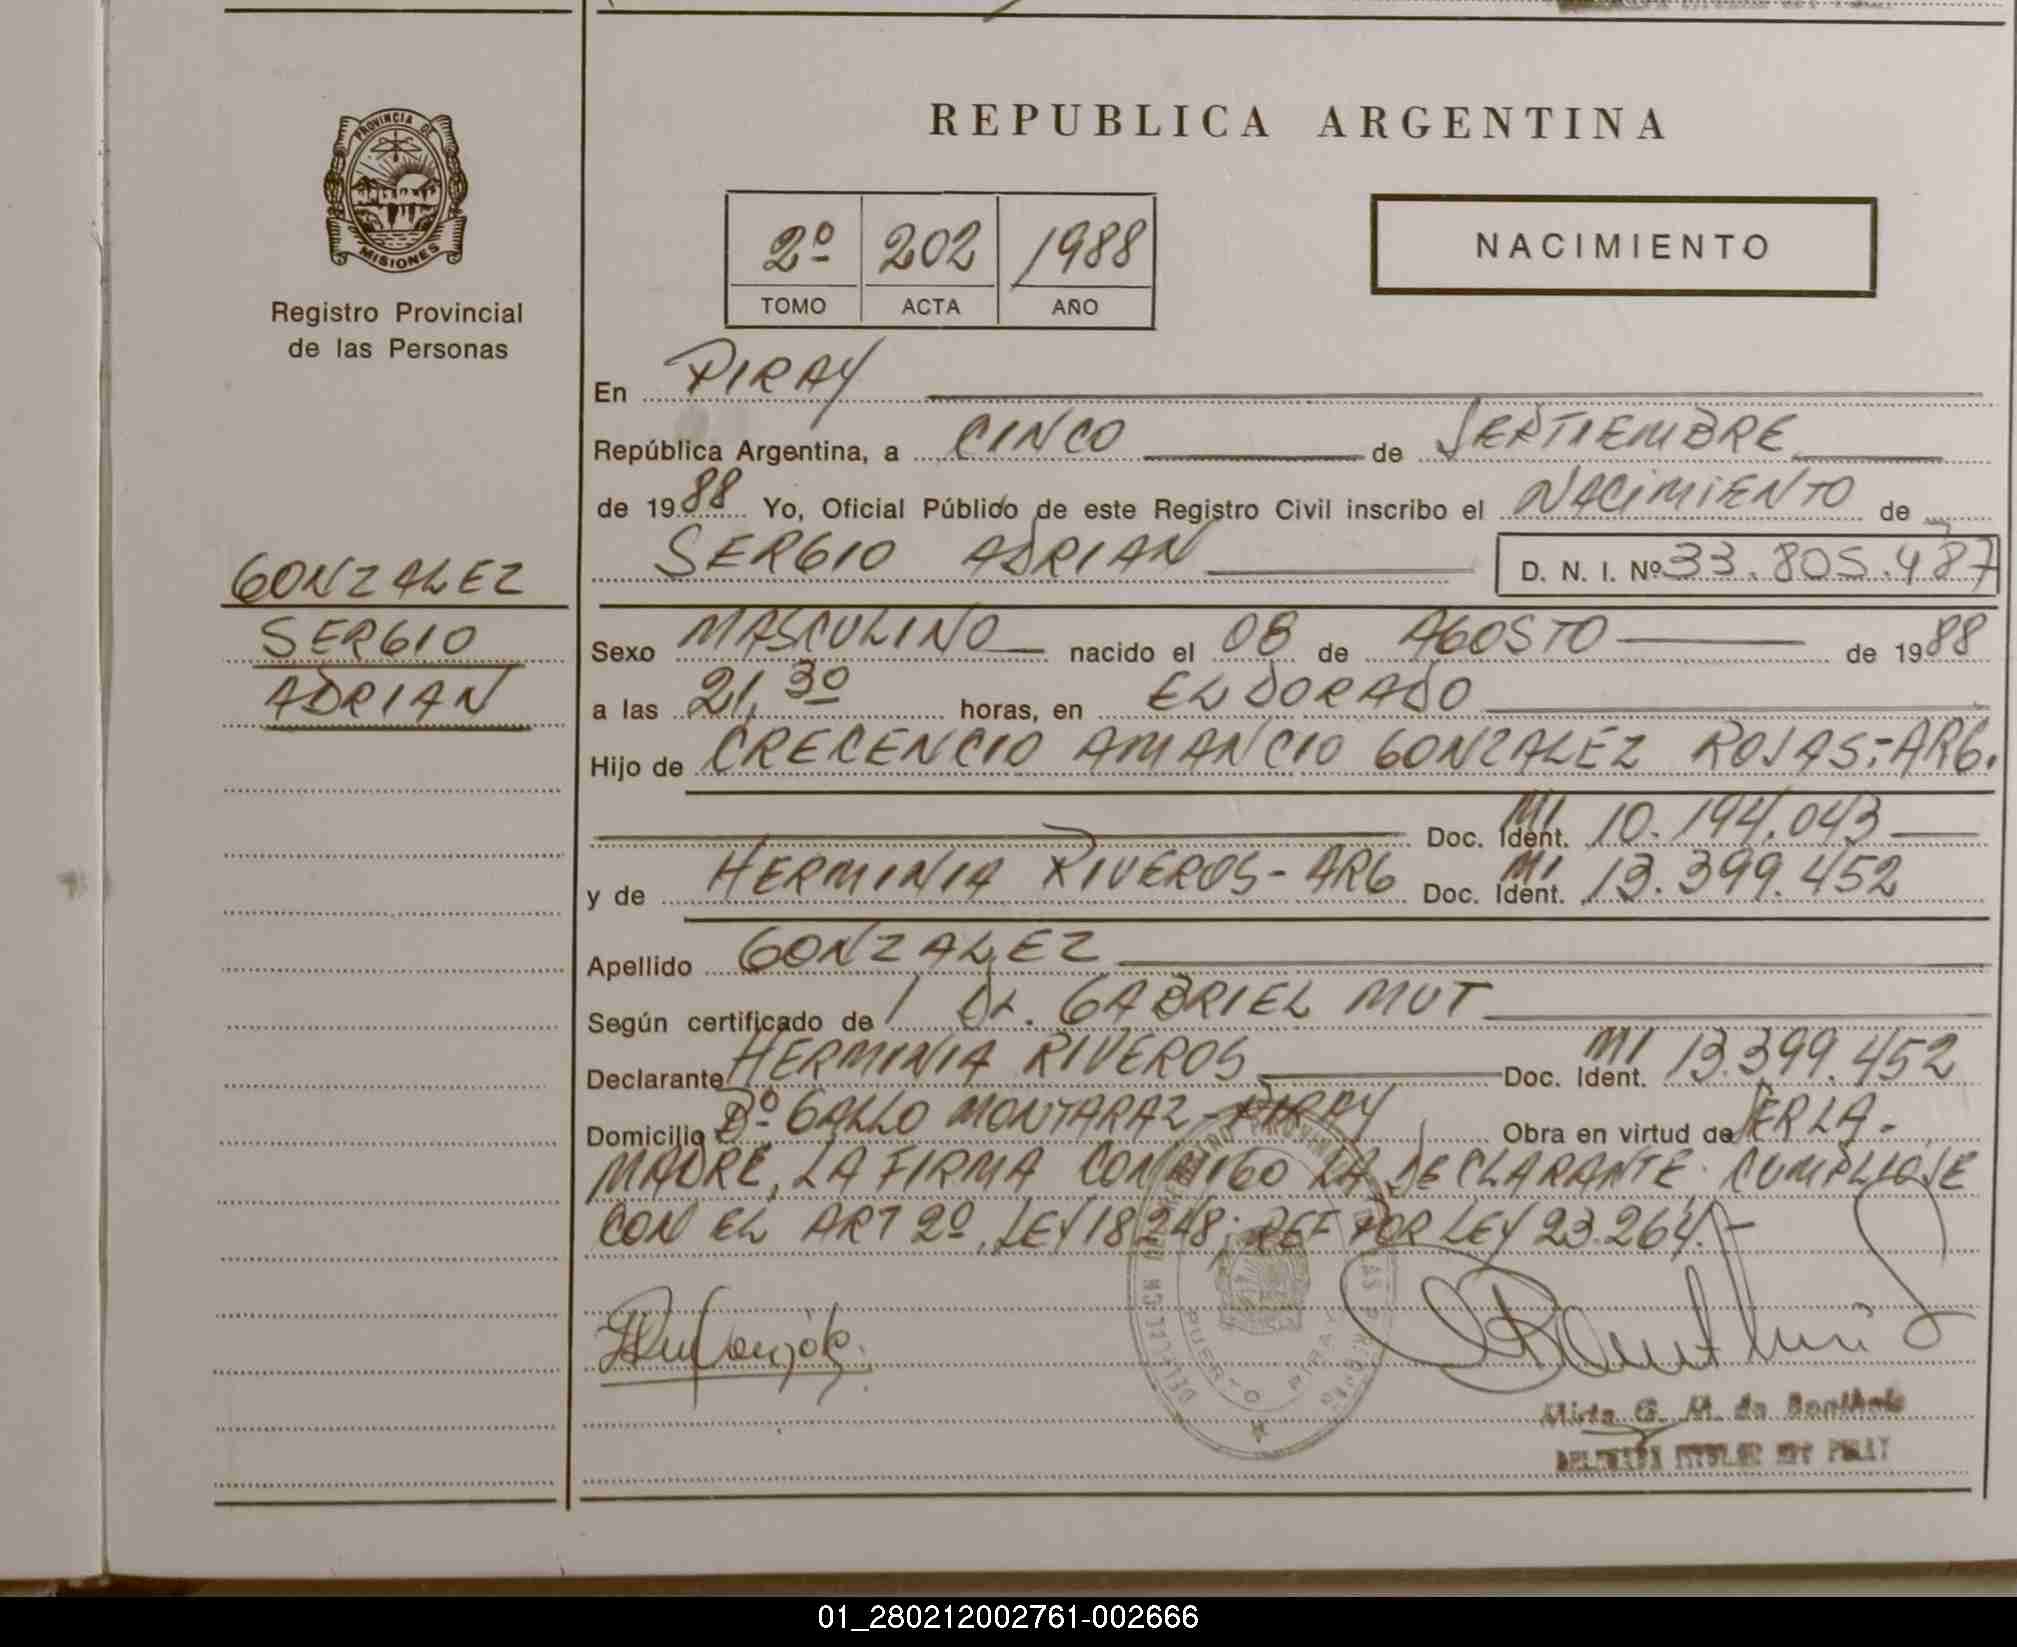 PROVINCIA DE
MISIONES
Registro Provincial
de las Personas
GONZALEZ
SERGIO
ADRIAN
REPUBLICA ARGENTINA
2º 202 1988
TOMO ACTA AÑO
NACIMIENTO
En PIRAY
República Argentina, a CINCO de SEPTIEMBRE
de 1988 Yo, Oficial Público de este Registro Civil inscribo el NACIMIENTO de
SERGIO ADRIAN D. N. I. Nº 33.805.487
Sexo MASCULINO nacido el 08 de AGOSTO de 1988
a las 21,30 horas, en ELDORADO
Hijo de CRECENCIO AMANCIO GONZALEZ ROJAS-ARG.
Doc. Ident. MI 10.194.043
y de HERMINIA RIVEROS-ARG Doc. Ident. MI 13.399.452
Apellido GONZALEZ
Según certificado de Dr. GABRIEL MUT
Declarante HERMINIA RIVEROS Doc. Ident. MI 13.399.452
Domicilio Bº GALLO MONTARAZ-PIRAY Obra en virtud de SER LA
MADRE, LA FIRMA CONMIGO LA DECLARANTE. CUMPLIOSE
CON EL ART 2º, LEY 18248; REF POR LEY 23.264.-
PUERTO PIRAY
Mirta G. M. de
DELEGADA TITULAR PTO PIRAY
01_280212002761-002666